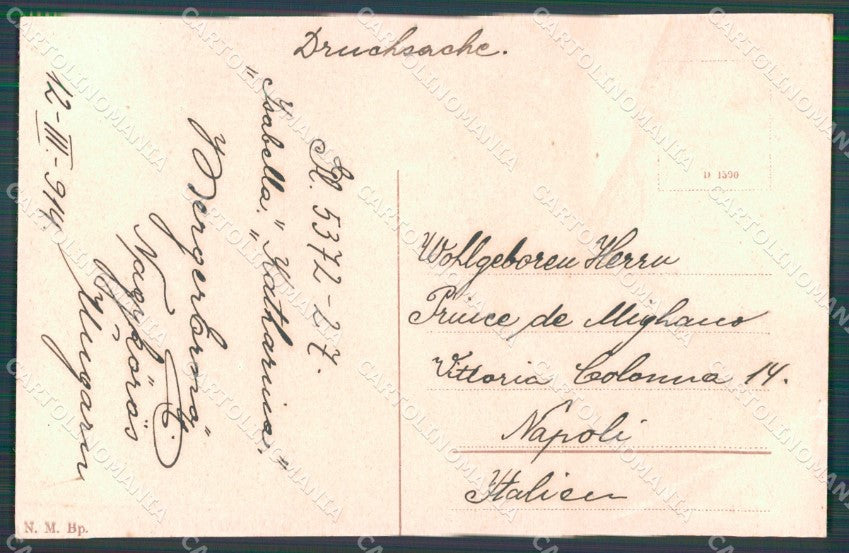 Drucksache.
Sl. 5372-27.
"Isabella," "Katharina,"
Nagykőrös
Ungarn
12-III-914.
D 1590
Wohlgeboren Herrn
Prince de Mighano
Vittoria Colonna 14.
Napoli
Italien
N. M. Bp.
CARTOLINOMANIA